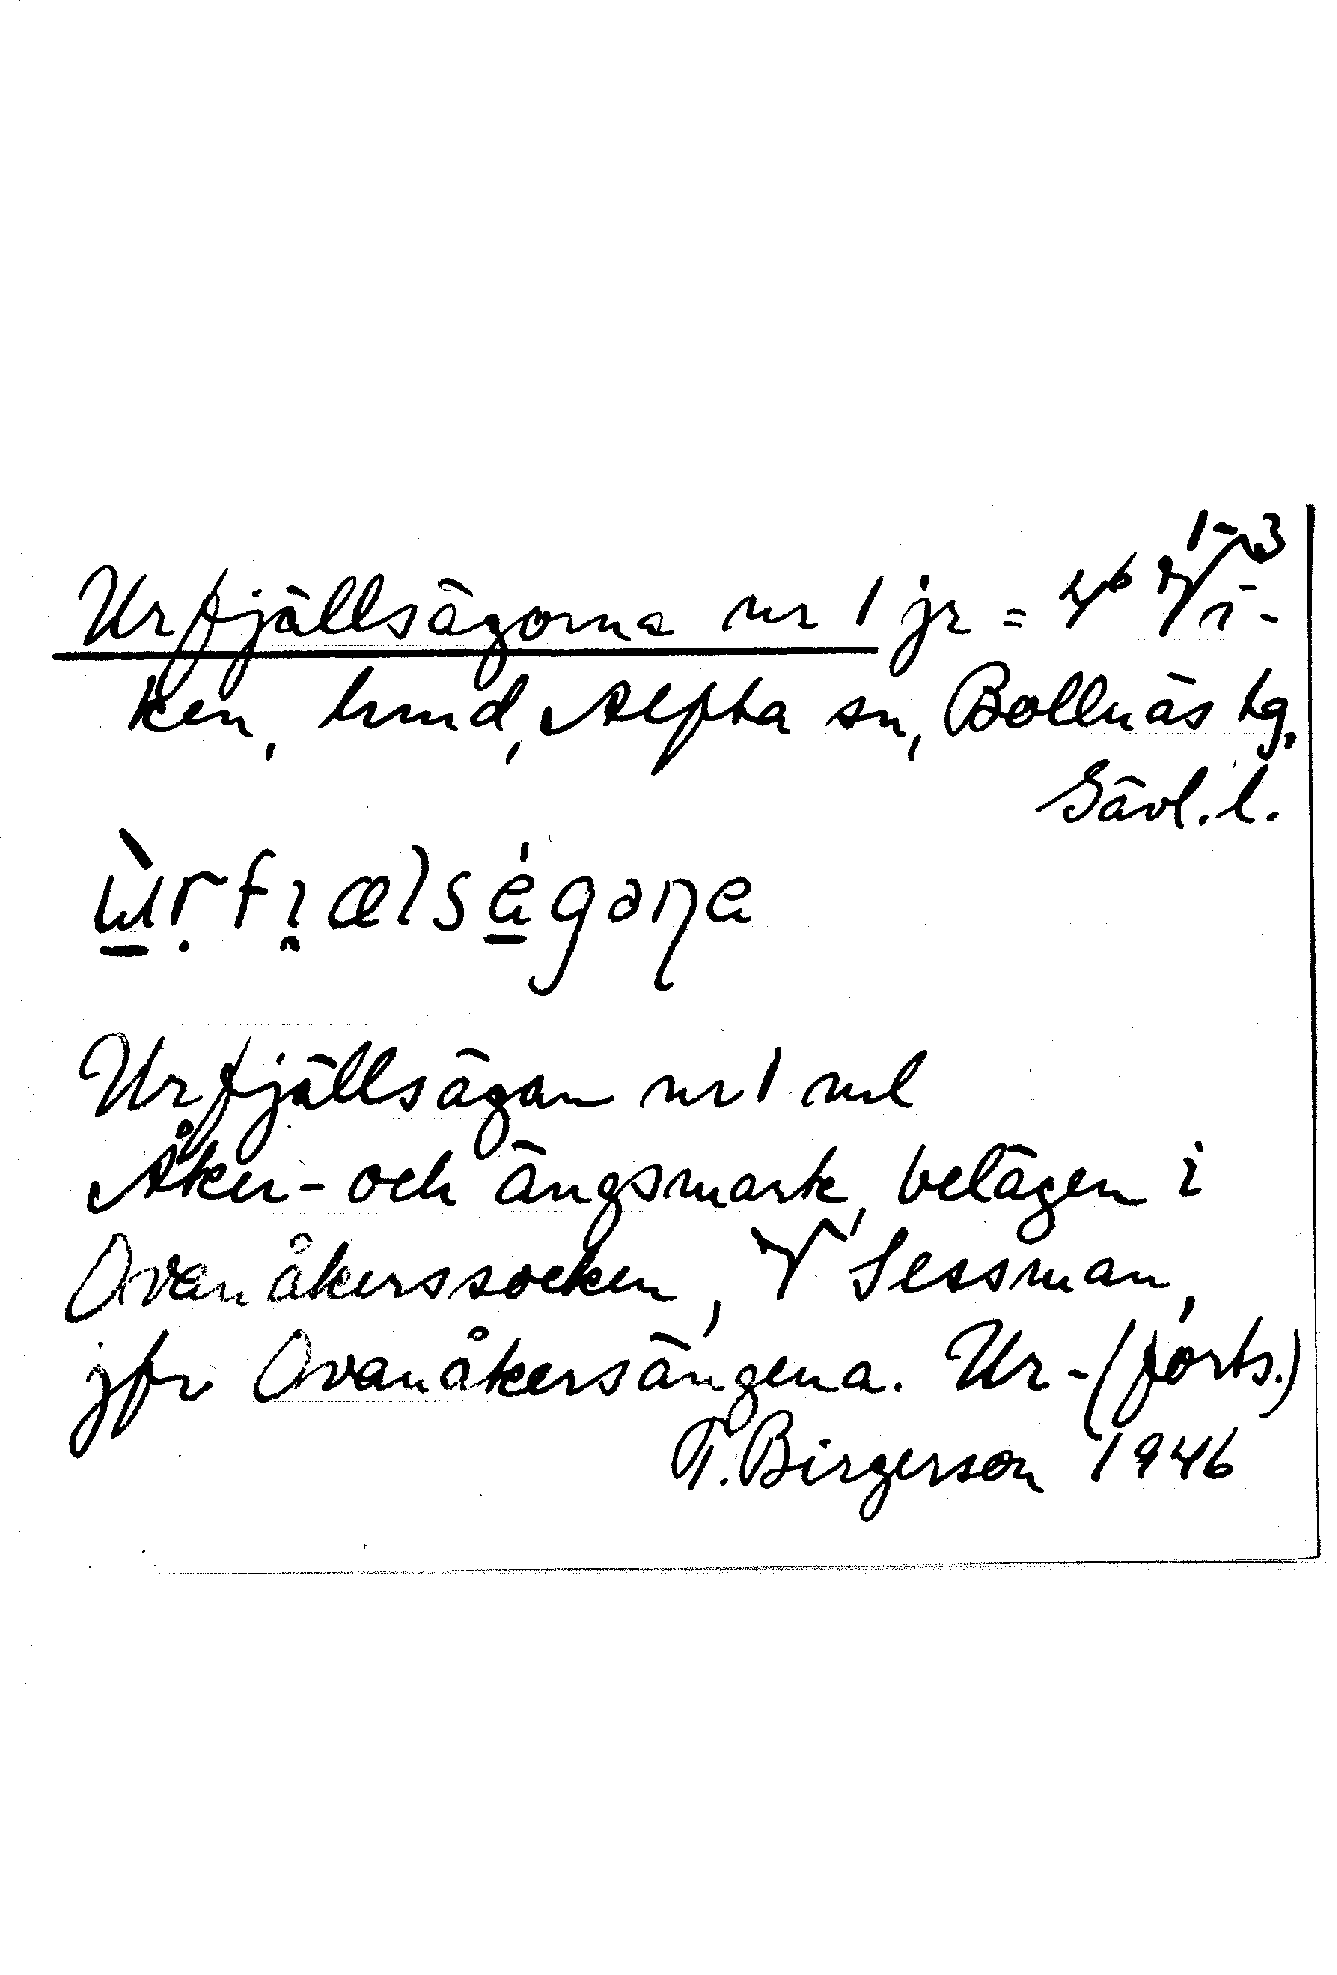 Urfjällsägorna nr 1 jr = 46 Vi- 1-3
ken, hmd, Alfta sn, Bollnäs tg,
Gävl. l.
ẁ̱ṛfi̯æls
Urfjällsägan nr 1 ml
Åker- och ängsmark, belägen i
Ovanåkerssocken, V Sessman,
jfr Ovanåkersängena. Ur- (forts.)
T. Birgerson 1946